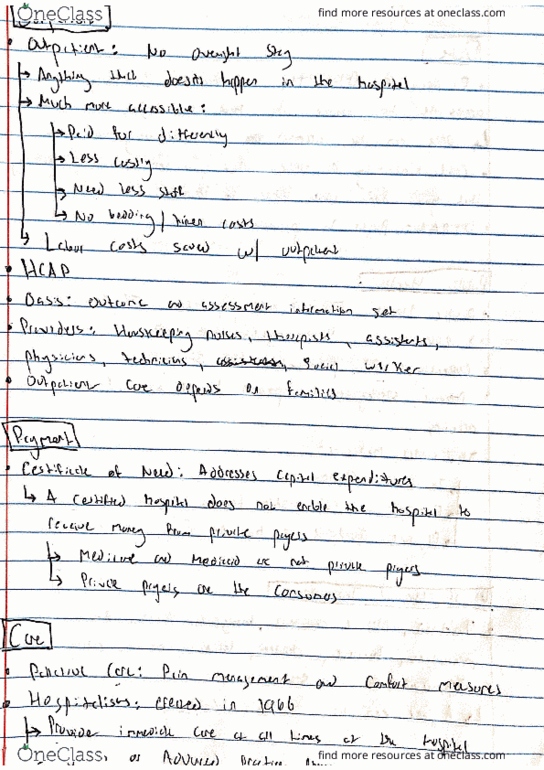 OneClass find more resources at oneclass.com
• Outpatient: No overnight stay
→ Anything that doesn't happen in the hospital
→ Much more accessible:
→ Paid for differently
→ Less costly
→ Need less staff
→ No bedding/linen costs
→ Labour costs saved w/ outpatient
• HCAP
• Oasis: outcome and assessment information set
• Providers: Housekeeping nurses, therapists, assistants,
physicians, technicians, social worker
• Outpatient care depends on families
Payment
• Certificate of Need: Addresses capital expenditures
↳ A certified hospital does not enable the hospital to
receive money from private payers
→ Medicare and Medicaid are not private payers
→ Private payers are the consumers
Care
• Palliative Care: Pain management and comfort measures
• Hospitalists: created in 1966
→ Provide immediate care at all times at the hospital
OneClass or Advanced Practice find more resources at oneclass.com